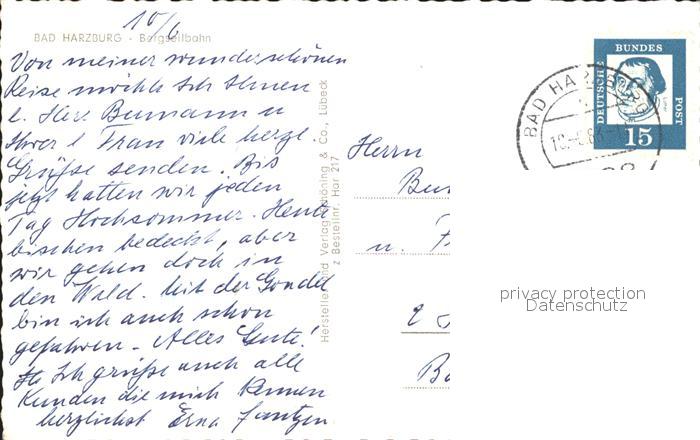 10/6
BAD HARZBURG - Bergseilbahn
Von meiner wunderschönen
Reise möchte ich Ihnen
l. Herr Bumann u
Ihrer l Frau viele herzl.
Grüße senden. Bis
jetzt hatten wir jeden
Tag Hochsommer. Heute
bischen bedeckt, aber
wir gehen doch in
den Wald. Mit der Gondel
bin ich auch schon
gefahren - Alles Gute!
Ich grüße auch alle
Kunden die mich kennen
herzlichst Erna Jantzen
Hersteller und Verlag Schöning & Co., Lübeck
Bestellnr. Har 217
Herrn
u.
2
BAD HARZBURG
DEUTSCHE
BUNDES
POST
15
privacy protection
Datenschutz